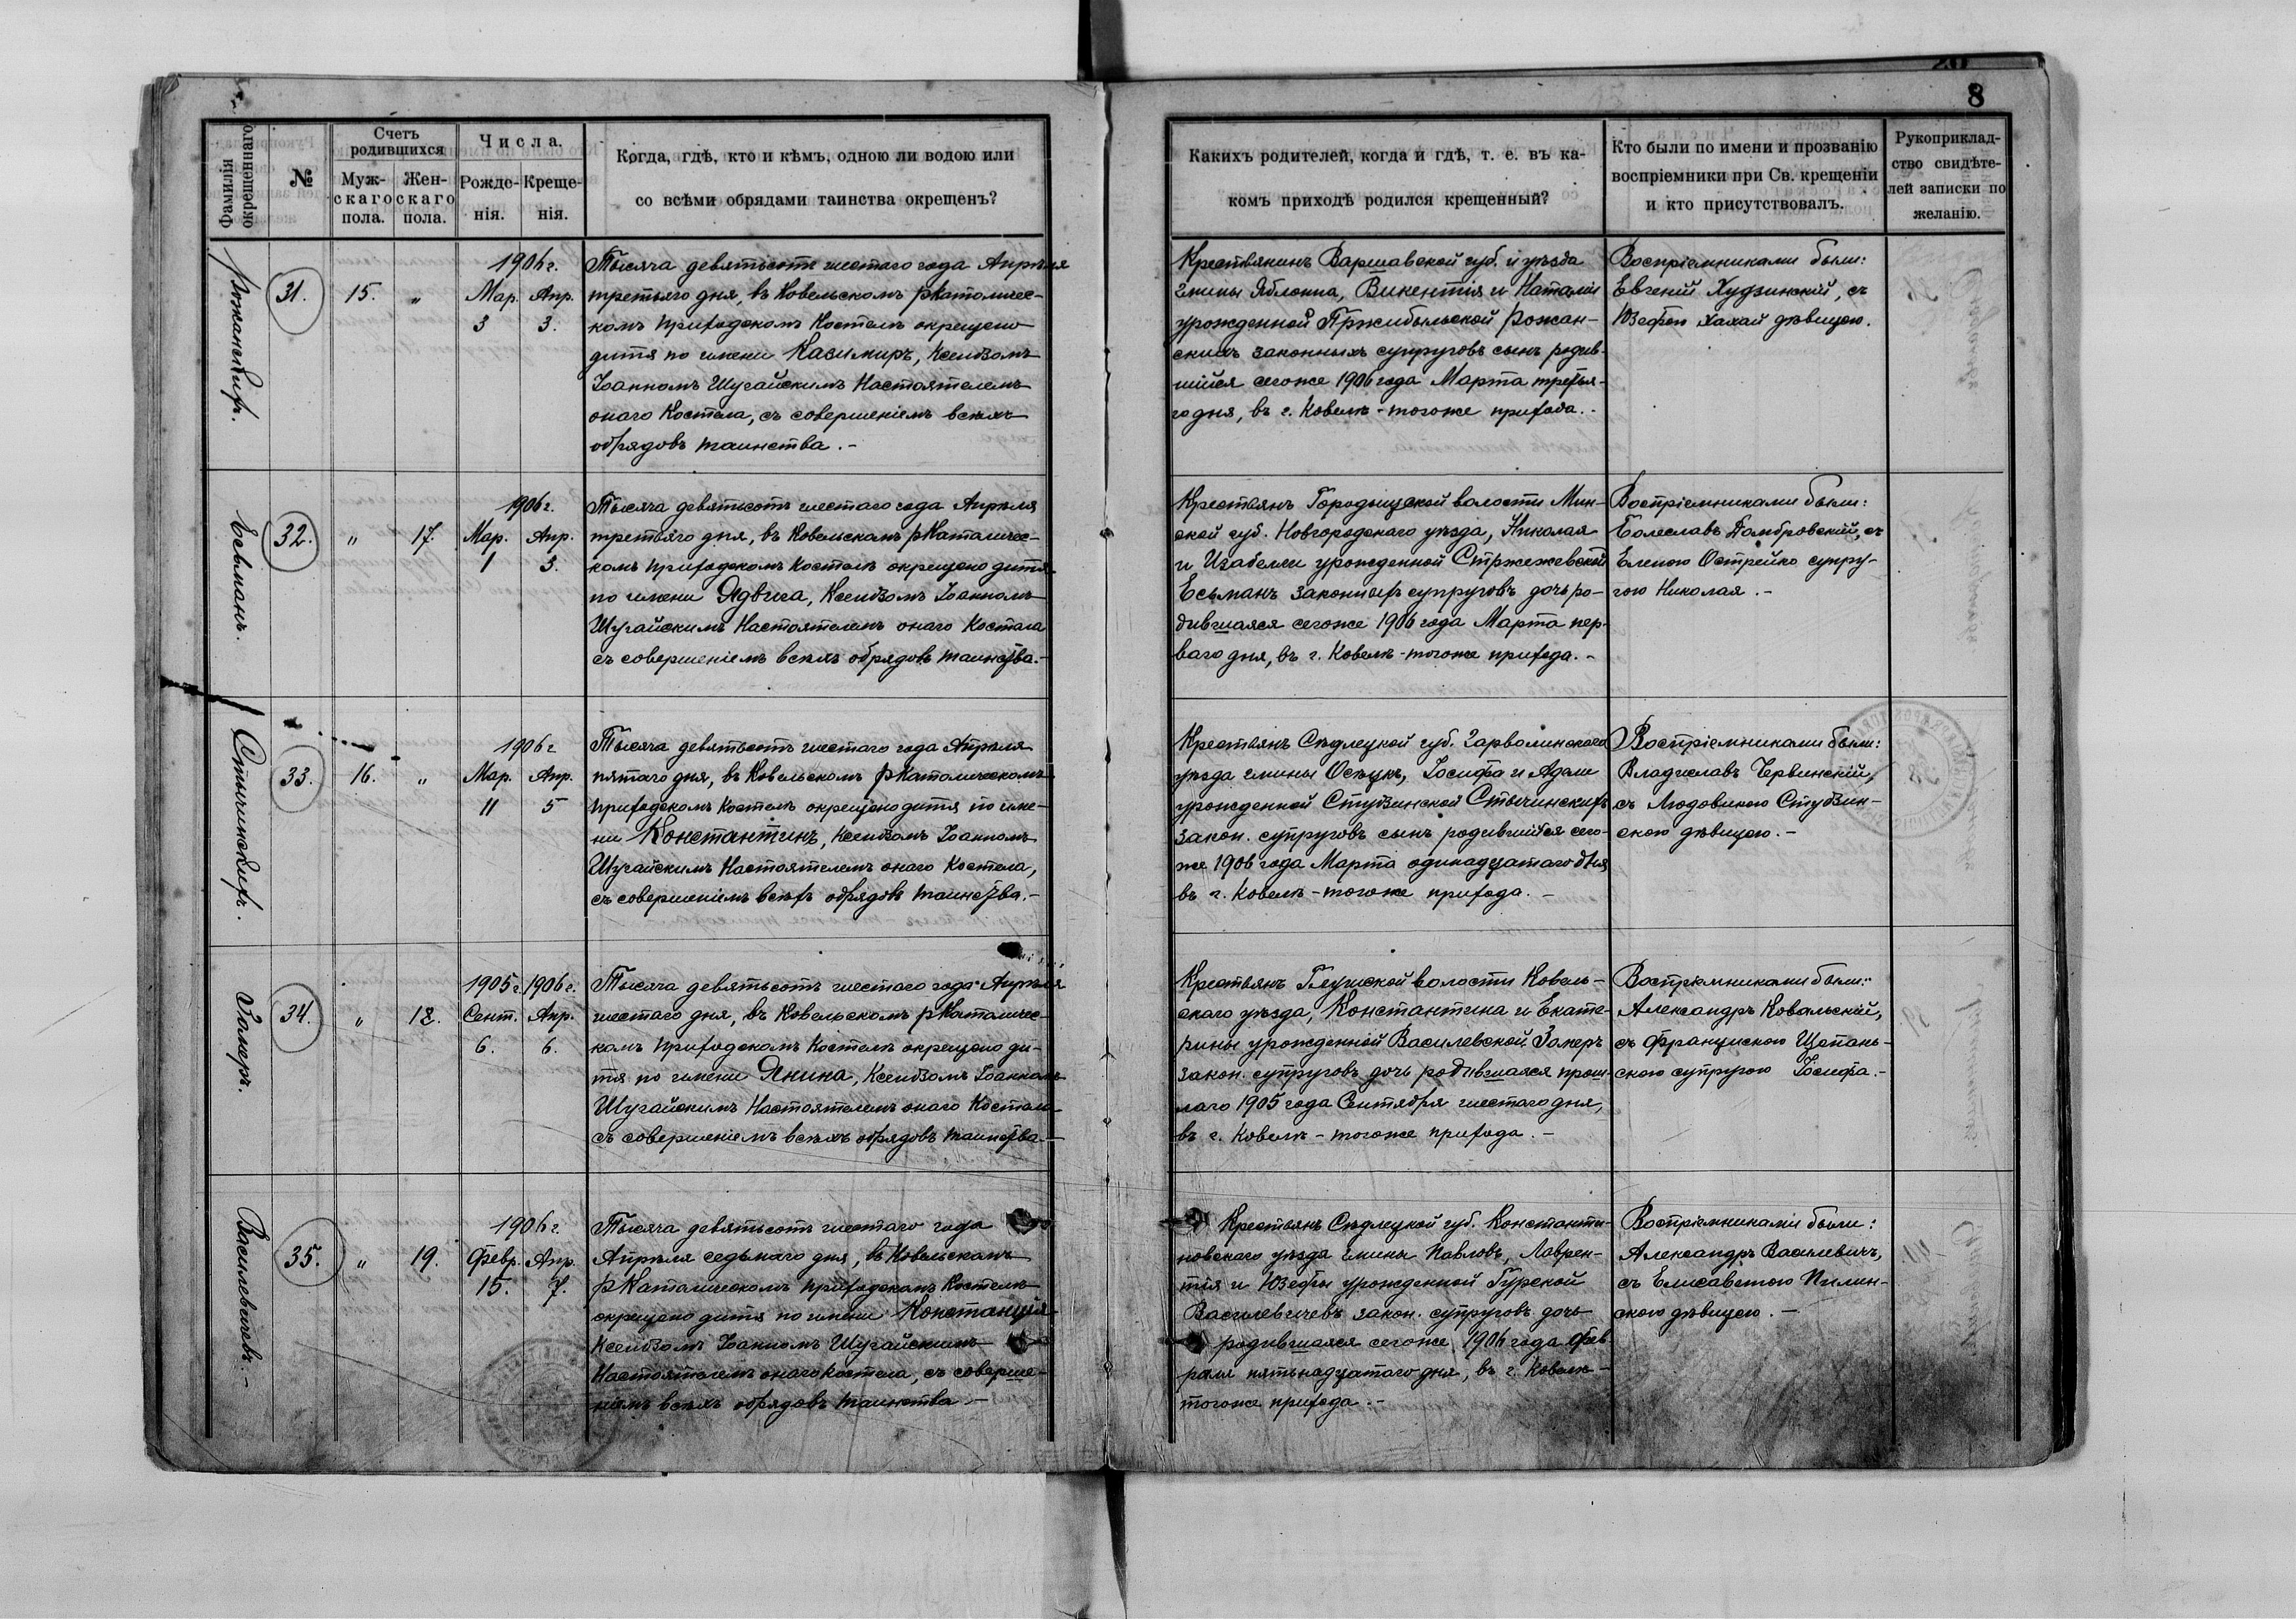 8
Фамилія окрещеннаго
№
Счетъ родившихся
Муж-скаго пола.
Жен-скаго пола.
Числа.
Рожде-нія.
Креще-нія.
Когда, гдѣ, кто и кѣмъ, одною ли водою или
со всѣми обрядами таинства окрещенъ?
Какихъ родителей, когда и гдѣ, т. е. въ ка-
комъ приходѣ родился крещенный?
Кто были по имени и прозванію
воспріемники при Св. крещеніи
и кто присутствовалъ.
Рукоприклад-
ство свидѣте-
лей записки по
желанію.
Рожанскихъ.
31.
15.
"
1906 г.
Мар. Апр.
3 3.
Тысяча девятьсотъ шестаго года Апрѣля
третьяго дня, въ Ковельскомъ рКатоличес-
комъ приходскомъ Костелѣ окрещено
дитя по имени Казимиръ, Ксендзомъ
Іоанномъ Шугайскимъ Настоятелемъ
онаго Костела, съ совершеніемъ всѣхъ
обрядовъ таинства.-
Крестьянинъ Варшавской губ. и уѣзда
гмины Яблонна, Викентія и Наталіи
урожденной Пржибыльской Рожан-
скихъ законныхъ супруговъ сынъ родив-
шійся сегоже 1906 года Марта третья-
го дня, въ г. Ковелѣ-тогоже прихода.-
Воспріемниками были:
Евгеній Худзинскій, съ
Юзефою Халай дѣвицею.
Есьманъ.
32.
"
17.
1906 г.
Мар. Апр.
1 3.
Тысяча девятьсотъ шестаго года Апрѣля
третьяго дня, въ Ковельскомъ рКатоличес-
комъ приходскомъ Костелѣ окрещено дитя
по имени Ядвига, Ксендзомъ Іоанномъ
Шугайскимъ Настоятелемъ онаго Костела
съ совершеніемъ всѣхъ обрядовъ таинства.-
Крестьянъ Городыщской волости Мин-
ской губ. Новгородскаго уѣзда, Николая
и Изабелли урожденной Стржежевской
Есьманъ законныхъ супруговъ дочь ро-
дившаяся сегоже 1906 года Марта пер-
ваго дня, въ г. Ковелѣ-тогоже прихода.-
Воспріемниками были:
Болеславъ Домбровскій, съ
Еленою Острейко супру-
гою Николая.-
Стычинскихъ.
33.
16.
"
1906 г
Мар. Апр.
11 5
Тысяча девятьсотъ шестаго года Апрѣля
пятаго дня, въ Ковельскомъ рКатолическомъ
приходскомъ Костелѣ окрещено дитя по име-
ни Константинъ, Ксендзомъ Іоанномъ
Шугайскимъ Настоятелемъ онаго Костела,
съ совершеніемъ всѣхъ обрядовъ таинства.-
Крестьянъ Сѣдлецкой губ. Гарволинскаго
уѣзда гмины Осѣцкъ, Іосифа и Адели
урожденной Студзинской Стычинскихъ
закон. супруговъ сынъ родившійся сего-
же 1906 года Марта одинадцатаго дня
въ г. Ковелѣ-тогоже прихода.-
Воспріемниками были:
Владиславъ Червинскій,
съ Людовикою Студзин-
скою дѣвицею.-
Замеръ.
34.
"
18.
1905 г. 1906 г.
Сент. Апр.
6. 6.
Тысяча девятьсотъ шестаго года Апрѣля
шестаго дня, въ Ковельскомъ рКатоличес-
комъ приходскомъ Костелѣ окрещено ди-
тя по имени Янина, Ксендзомъ Іоанномъ
Шугайскимъ Настоятелемъ онаго Костела
съ совершеніемъ всѣхъ обрядовъ таинства-
Крестьянъ Глушской волости Ковель-
скаго уѣзда, Константина и Екате-
рины урожденной Василевской Замеръ
закон. супруговъ дочь родившаяся прош-
лаго 1905 года Сентября шестаго дня,
въ г. Ковелѣ-тогоже прихода.-
Воспріемниками были:
Александръ Ковальскій,
съ Францискою Щепань-
скою супругою Іосифа.-
Василевичевъ.-
35.
"
19.
1906 г.
Февр. Апр.
15. 7.
Тысяча девятьсотъ шестаго года
Апрѣля седьмаго дня, въ Ковельскомъ
рКатолическомъ приходскомъ Костелѣ
окрещено дитя по имени Констанція
Ксендзомъ Іоанномъ Шугайскимъ
Настоятелемъ онаго Костела, съ соверше-
ніемъ всѣхъ обрядовъ таинства-
Крестьянъ Сѣдлецкой губ. Константи-
новскаго уѣзда гмины Павловъ, Лаврен-
тія и Юзефы урожденной Гурской
Василевичевъ закон. супруговъ дочь
родившаяся сегоже 1906 года Фев-
раля пятьнадцатаго дня, въ г. Ковелѣ-
тогоже прихода.-
Воспріемниками были:
Александръ Василевичъ,
съ Елисаветою Пилин-
скою дѣвицею.-